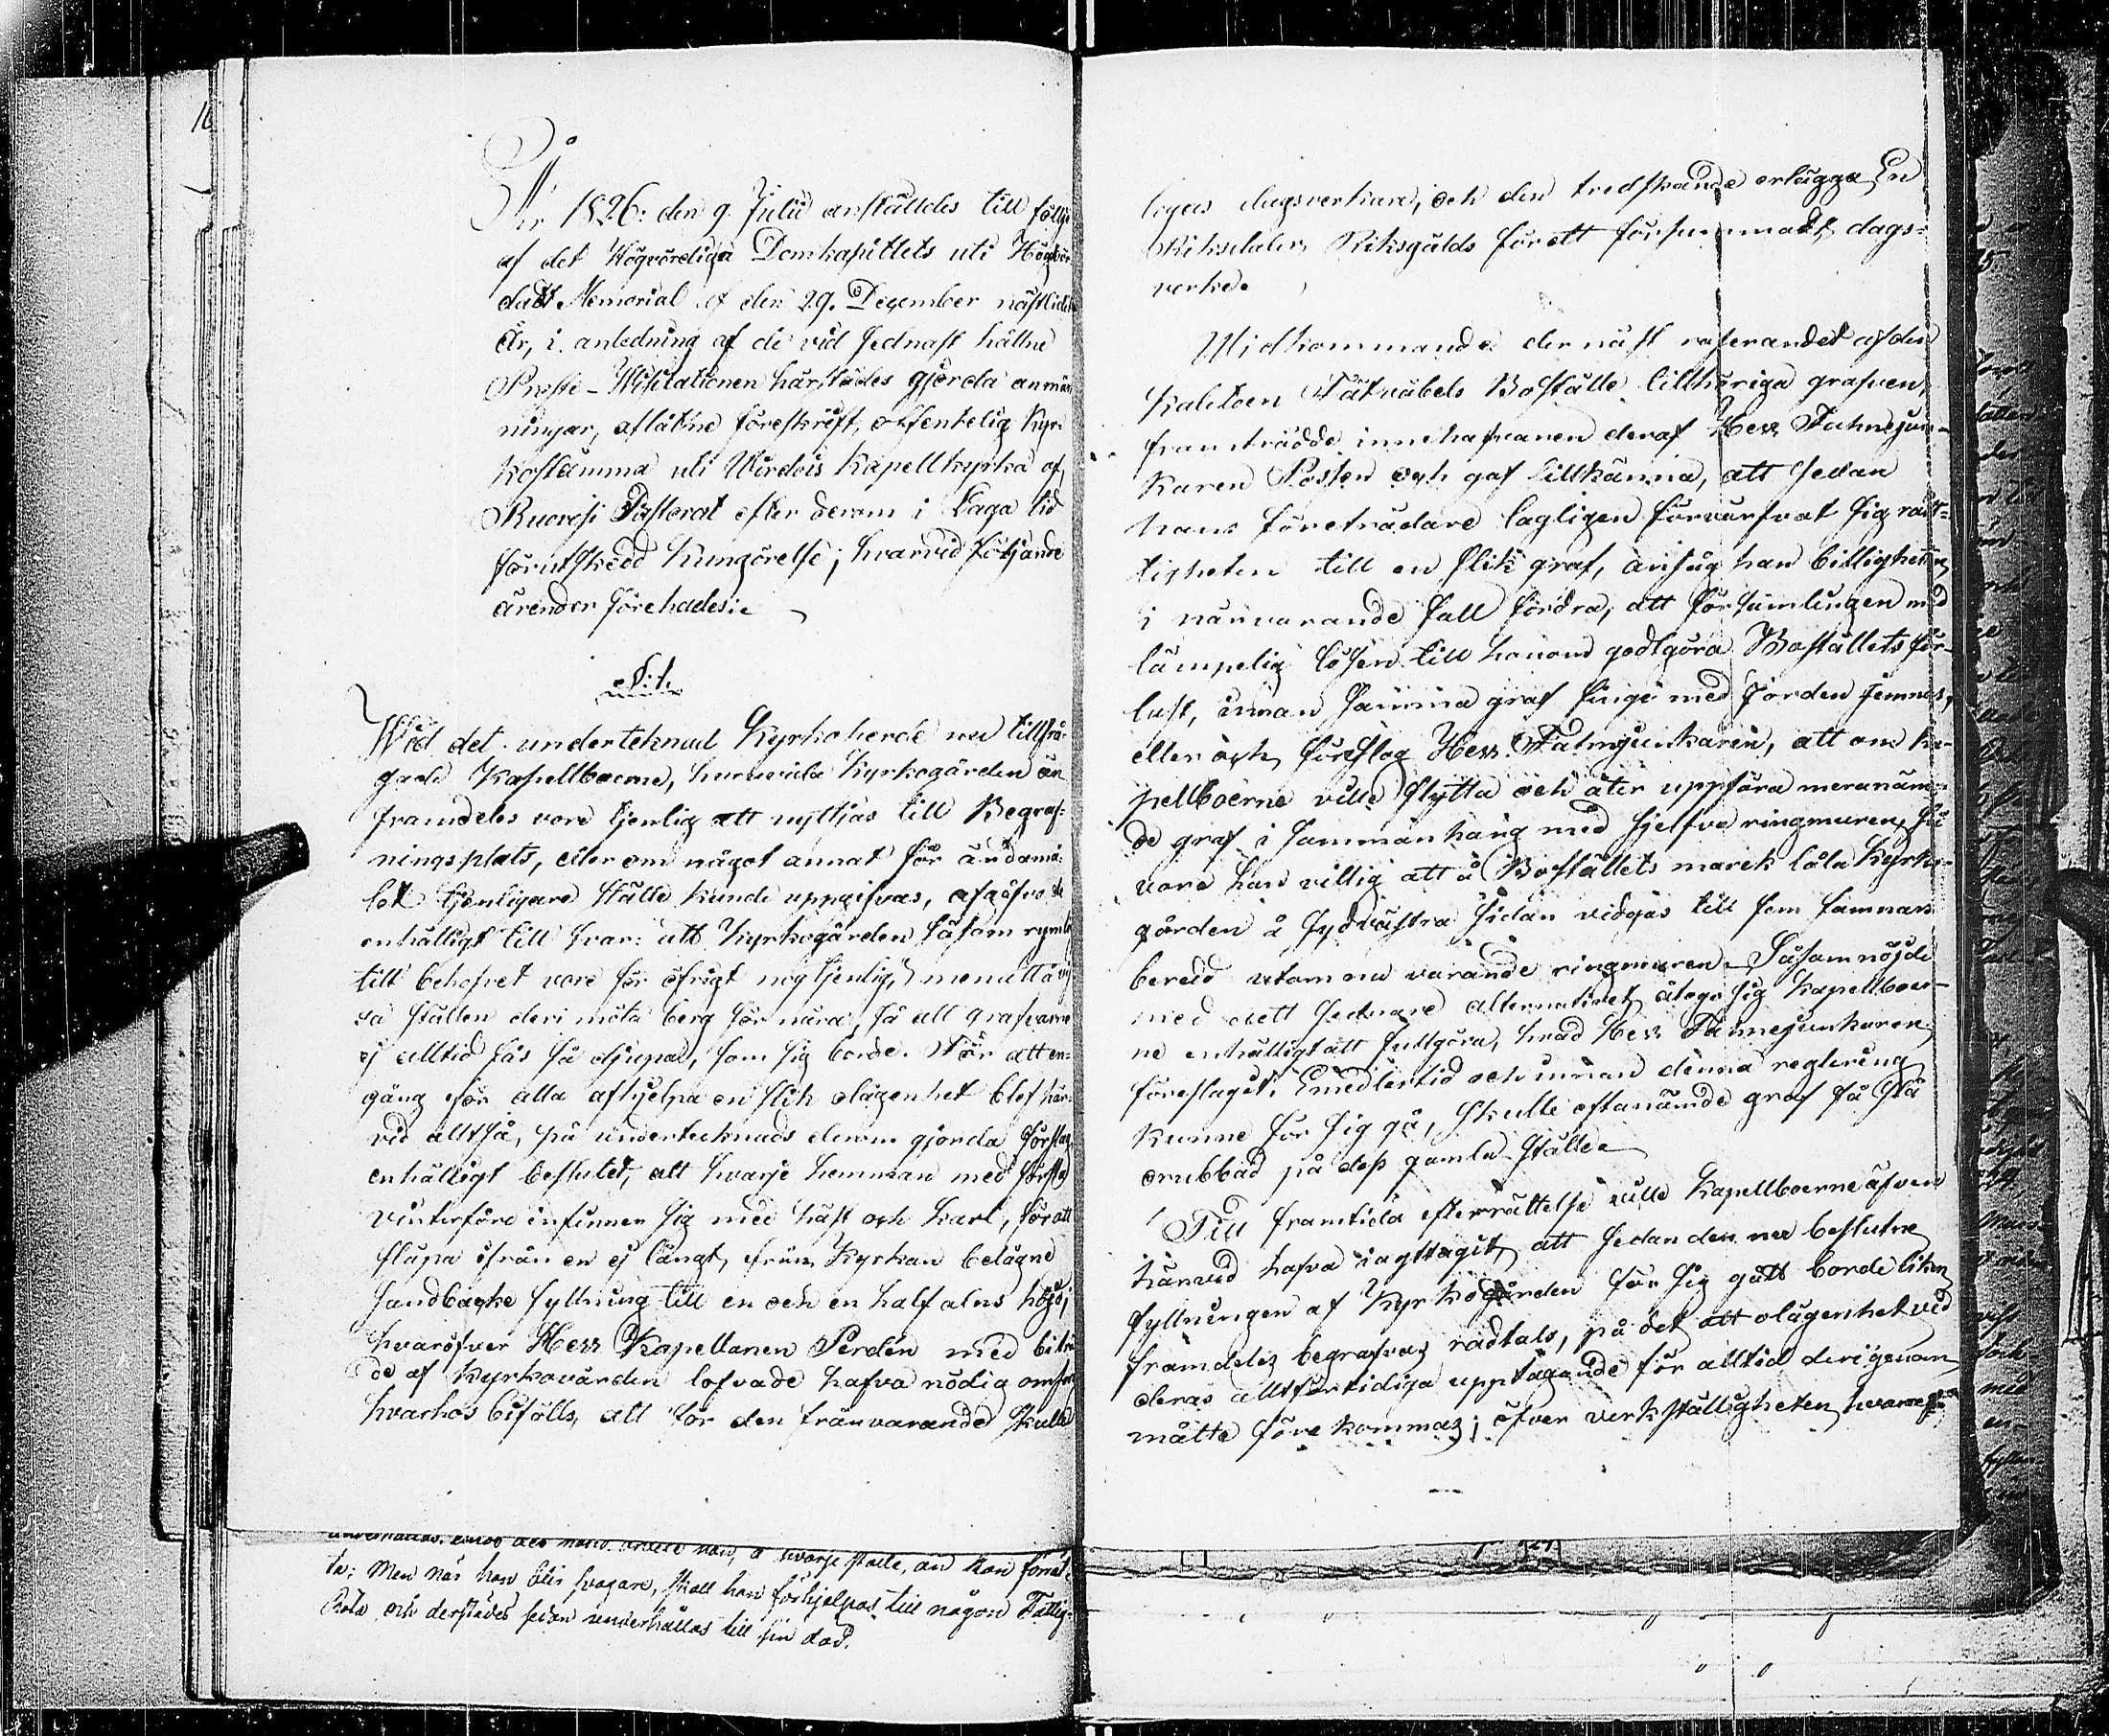 16
År 1826. den 9. Julii anställdes till följe
af det Högvördiga Domkapittlets uti Högvör
dadt Memorial af den 29. December nästlidit
År, i anledning af de vid sednast hållne
Prosts-Visitationen härstädes gjorda anmär
ningar, aflåtne föreskrift, offentelig Kyr-
kostämma uti Wirdois Kapellkyrka af
Ruovesi Pastorat efter derom i Laga tid
förutskedd kungörelse; hvarvid följande
ärender förehades:
§. 1.
Wid det undertecknad Kyrkoherde nu tillfrå-
gade Kapellboerne, huruvida Kyrkogården än
framdeles vore tjenlig att nyttjas till Begraf-
ningsplats, eller om något annat för ändamå-
let tjenligare ställe kunde uppgifvas, afgåfvo de
enhälligt till svar: att Kyrkogården såsom rymlig
till behofvet vore för öfrigt nog tjenlig, men att å vis
sa ställen deri möta berg för nära, så att grafvarne
ej alltid fås så djupa, som sig borde. För att en-
gång för alla afhjelpa en slik olägenhet blef här-
vid alltså, på undertecknads derom gjorda förslag
enhälligt beslutet, att hvarje hemman med första
vinterföre infinner sig med häst och karl, för att
släpa ifrån en ej långt från Kyrkan belägne
sandbacke fyllning till en och en half alns höjd;
hvaröfver Herr Kapellanen Perdén med biträ
de af Kyrkovärden lofvade hafva nödig omsorg
hvarhos bifölls, att för den frånvarande skulle
underhållas
å hvarje ställe, än han förrät
ta: Men når han blir svagare, skall han förhjelpas till någon Fattig-
Rota och derstädes sedan underhållas till sin död.
legas dagsverkare, och den tredskande erlägga En
Riksdaler Riksgälds för ett försummadt dags-
verke.
Widkommande dernäst raserandet af den
Kaleton Tätväbels Boställe tillhöriga grafven,
framträdde innehafvaren deraf Herr Fahnejun-
karen Possen och gaf tillkänna, att sedan
hans företrädare lagligen förvärfvat sig rätt-
tigheten till en slik graf, ansåg han billigheten
i närvarande fall fordra, att församlingen med
lämpelig lösen till honom godtgöra Boställets för-
lust, innan samma graf finge med jorden jemnas,
eller och föreslog Herr Fahnejunkaren, att om Ka-
pellboerne ville flytta och åter uppföra meranäm-
de graf i sammanhang med sjelfva ringmuren, så
vore han villig att å Boställets marck låta Kyrko-
gården å sydvästra sidan vidgas till fem famnars
bredd utom nu varande ringmuren. Såsom nöjde
med dett sednare alternativet, åtogo sig Kapellboer-
ne enhälligt att fullgöra, hvad Herr Fahnejunkaren
föreslaget. Emedlertid och innan denna reglering
kunne för sig gå, skulle oftanämde graf få stå
orubbad på dess gamla ställe.
Till framtida efterrättelse ville Kapellboerne äfven
härvid hafva iagttagit, att sedan den nu beslutne
fyllningen af Kyrkogården för sig gått borde liken
framdeles begrafvas radtals, på det att olägenhet vid
deras alltförtidiga upptagande för alltid derigenom
måtte förekommas; öfver verkställigheten hvaraf